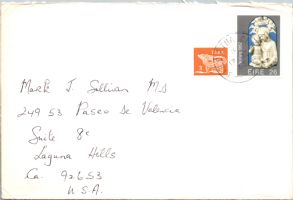 Mark J. Sullivan M.D
249 53 Paseo de Valencia
Suite 8c
Laguna Hills
Ca. 92653
U.S.A.
EIRE 26